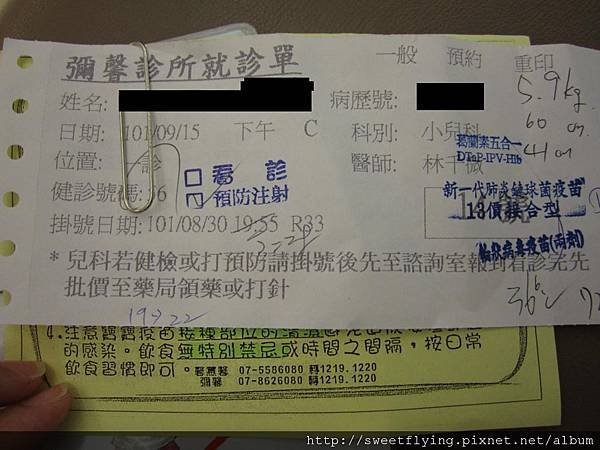 彌馨診所就診單 一般 預約 重印
姓名: 病歷號: 5.9kg
日期: 101/09/15 下午 C 科別: 小兒科 60 cm
位置: 一診 醫師: 葛蘭素五合一 41 cm
□ 看 診 DTaP-IPV-Hib
健診號碼: 56 預防注射 新一代肺炎鏈球菌疫苗
13價接合型
掛號日期: 101/08/30 19:55 R33
輪狀病毒疫苗(兩劑)
* 兒科若健檢或打預防請掛號後先至諮詢室報到看診完先
批價至藥局領藥或打針
4.注意寶寶疫苗接種部位的清潔
的感染。飲食無特別禁忌或時間之間隔，按日常
飲食習慣即可。馨蕙馨 07-5586080 轉1219.1220
彌馨 07-8626080 轉1219.1220
http://sweetflying.pixnet.net/album